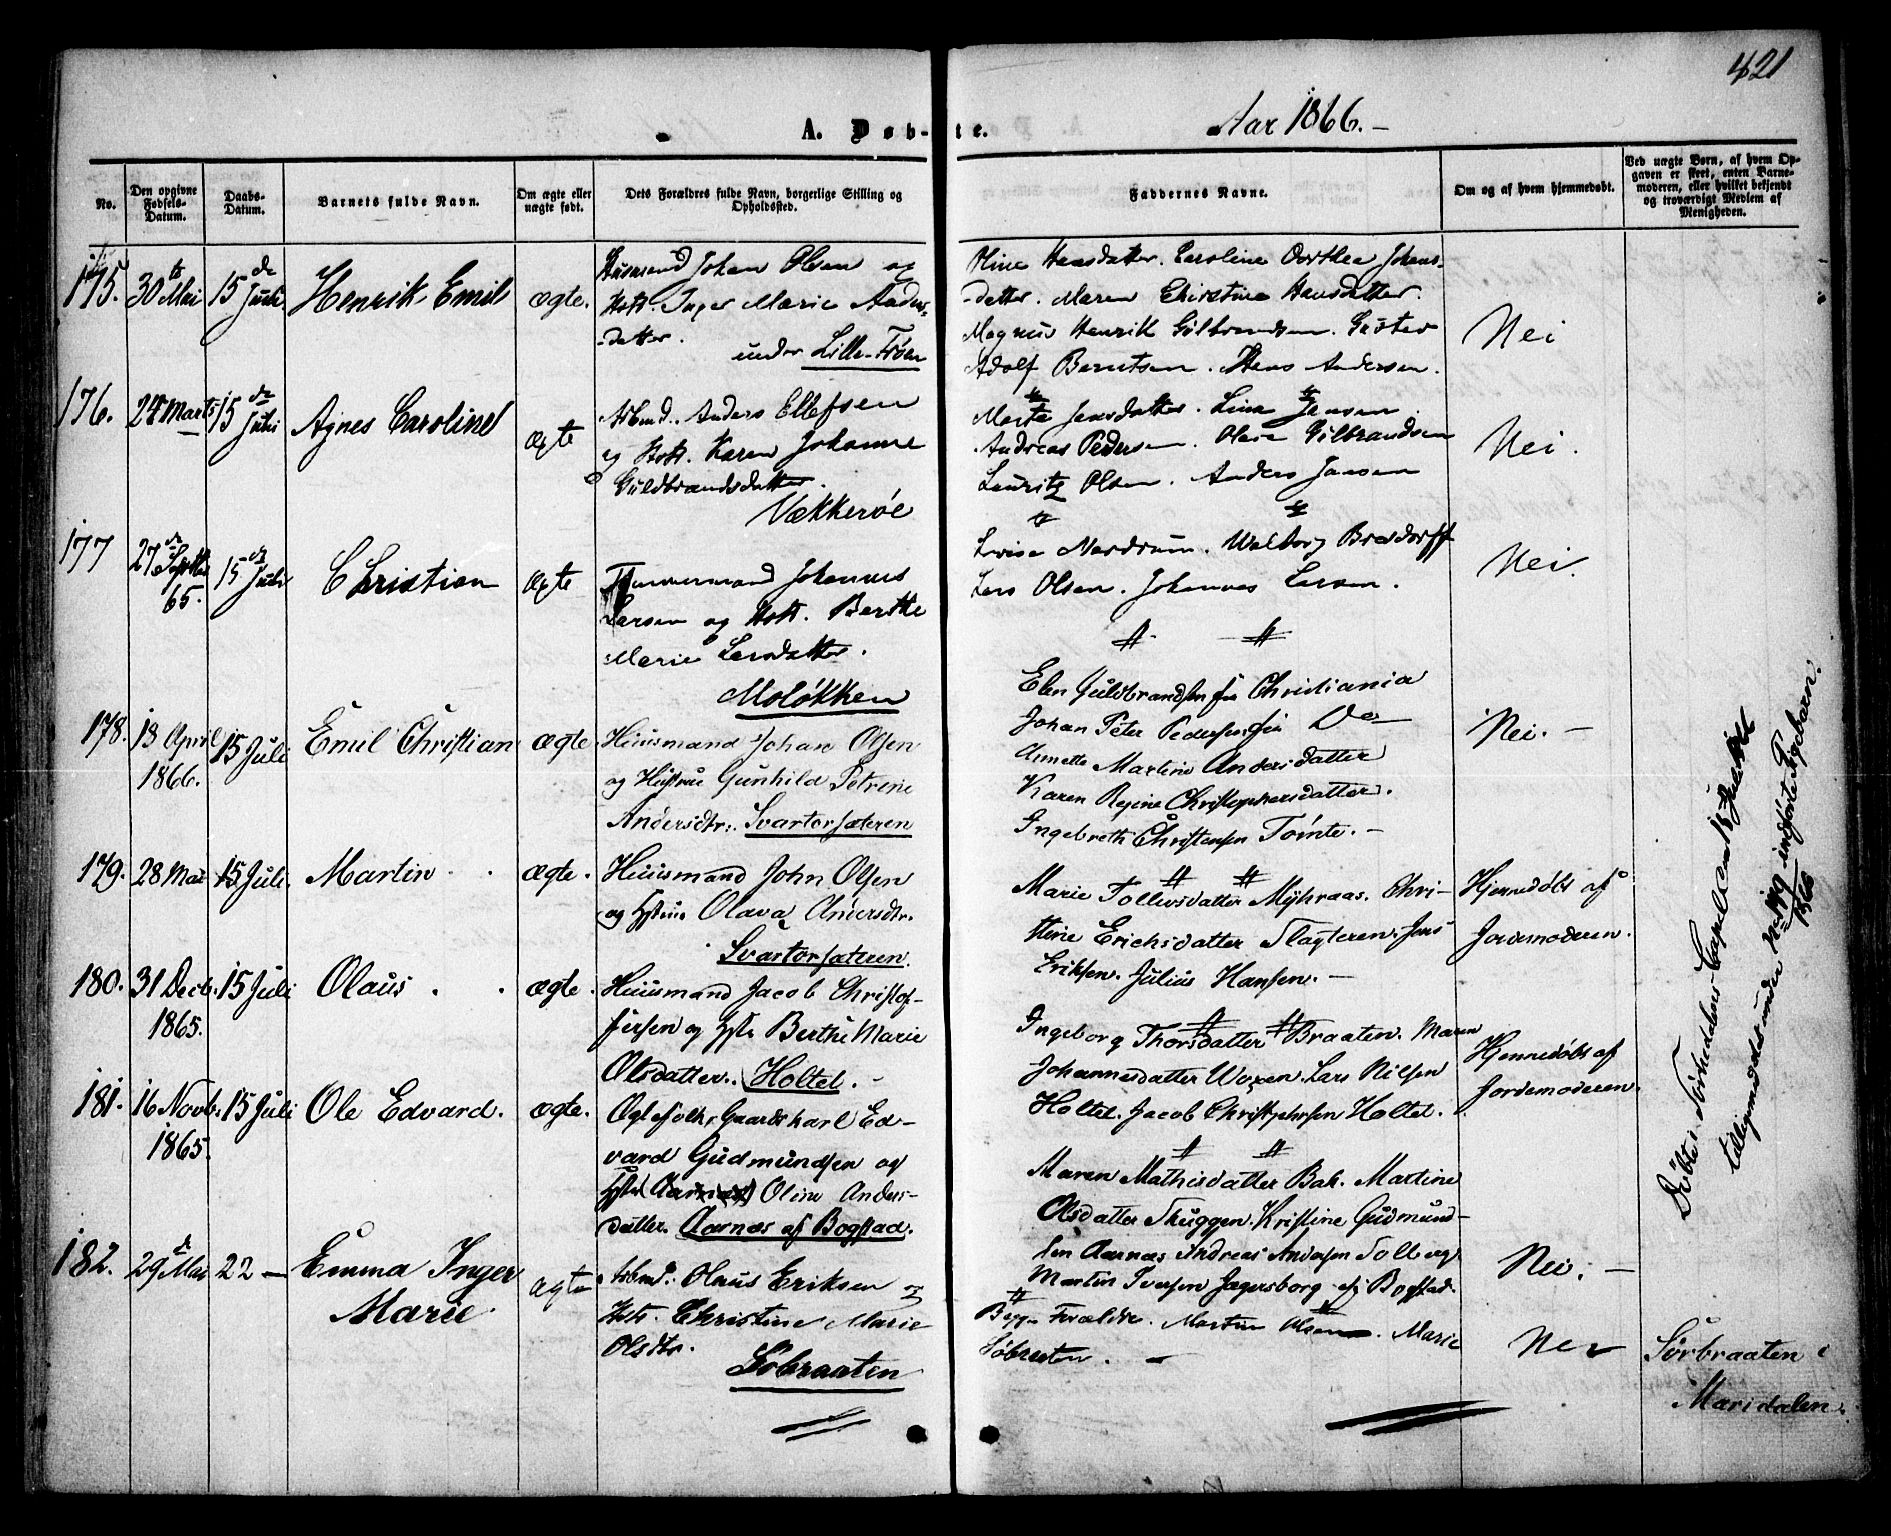 421
A. Døb-te.
Aar 1866.-
No.
Den opgivne Fødsels-Datum.
Daabs-Datum.
Barnets fulde Navn.
Om ægte eller uægte født.
Dets Forældres fulde Navn, borgerlige Stilling og Opholdssted.
Faddernes Navne.
Om og af hvem hjemmedøbt.
Ved uægte Børn, af hvem Opgaven er skeet, enten Barnemoderen, eller hvilket bekjendt og troværdigt Medlem af Menigheden.
175.
30te Mai
15de Juli
Henrik Emil
ægte.
Huusmand Johan Olsen og
Hstr. Inger Marie Anders-
-datter.
under Lille-Frøen
Oline Hansdatter. Caroline Dorthea Johans-
-datter. Maren Christine Hansdatter.
Magnus Henrik Gilbrandsen. Gustav
Adolf Berntsen. Hans Andersen.
Nei
176.
24 Marts
15de Juli
Agnes Caroline
ægte
Arbmd. Anders Ellefsen
og Hstr. Karen Johanne
Guldbrandsdatter.
Vækkerøe
Marte Jensdatter. Lina Jensen.
Andreas Pedersen. Olava Gilbrandsen
Lauritz Olsen. Anders Jansen
Nei.
177
27de Septbr 65.
15de Juli
Christian
ægte
Tømmermand Johannes
Larsen og Hstr. Berthe
Marie Larsdatter.
Moløkken
Lovise Nordrum. Walborg
Lars Olsen. Johannes Larsen.
Nei.
178.
13 April 1866.
15 Juli
Emil Christian
ægte
Huusmand Johan Olsen
og Hustrue Gunhild Petrine
Andersdtr. Svartorsæteren
Elen Guldbrandsen fra Christiania
Johan Peter Pedersen fra Do
Annette Martine Andersdatter
Karen Regine Christophersdatter.
Ingebreth Christensen Tømte.-
Nei.-
179.
28 Mai
15 Juli.
Martin
ægte.
Huusmand John Olsen
og Hstrue Olava Andersdtr.
Svartorsæteren.
Marie Tollevsdatter Myhraas. Chri-
stine Erichsdatter Slagteren. Jens
Eriksen. Julius Hansen.-
Hjemedøbt af
Jordemoderen.
180.
31 Decb. 1865.
15 Juli
Olaus
ægte.
Huusmand Jacob Christof-
fersen og Hstr Berthe Marie
Olsdatter. Holtet.-
Ingeborg Thorsdatter Braaten. Maren
Johannesdatter Woxen. Lars Nilsen
Holtet. Jacob Christophersen Holtet.
Hjemedøbt af
Jordemoderen.
181.
16 Novb. 1865.
15 Juli
Ole Edvard.
ægte.
Ægtefolk, Gaardskarl Ed-
vard Gudmundsen og
Hstr Oline Anders-
datter. Aarnæs af Bogstad.
Maren Mathisdatter Bak. Martine
Olsdatter Skuggen. Kristine Gudmund-
sen Aarnæs Andreas Andersen Solberg
Martin Iversen Jægersborg af Bogstad.
Nei.-
182.
29de Mai
22 -
Emma Inger
Marie.
ægte
Arbmd. Olaus Eriksen og
Hstr. Christine Marie
Olsdtr.
Sobraaten
Begge Forældre. Martin Olsen. Marie
Sobraaten. -
Nei
Sørbraaten i
Maridalen.
Døbte i Sørkedalens Capel den 15 Juli 1866
tilligemed det under No 149 indførte Pigebarn.
1866